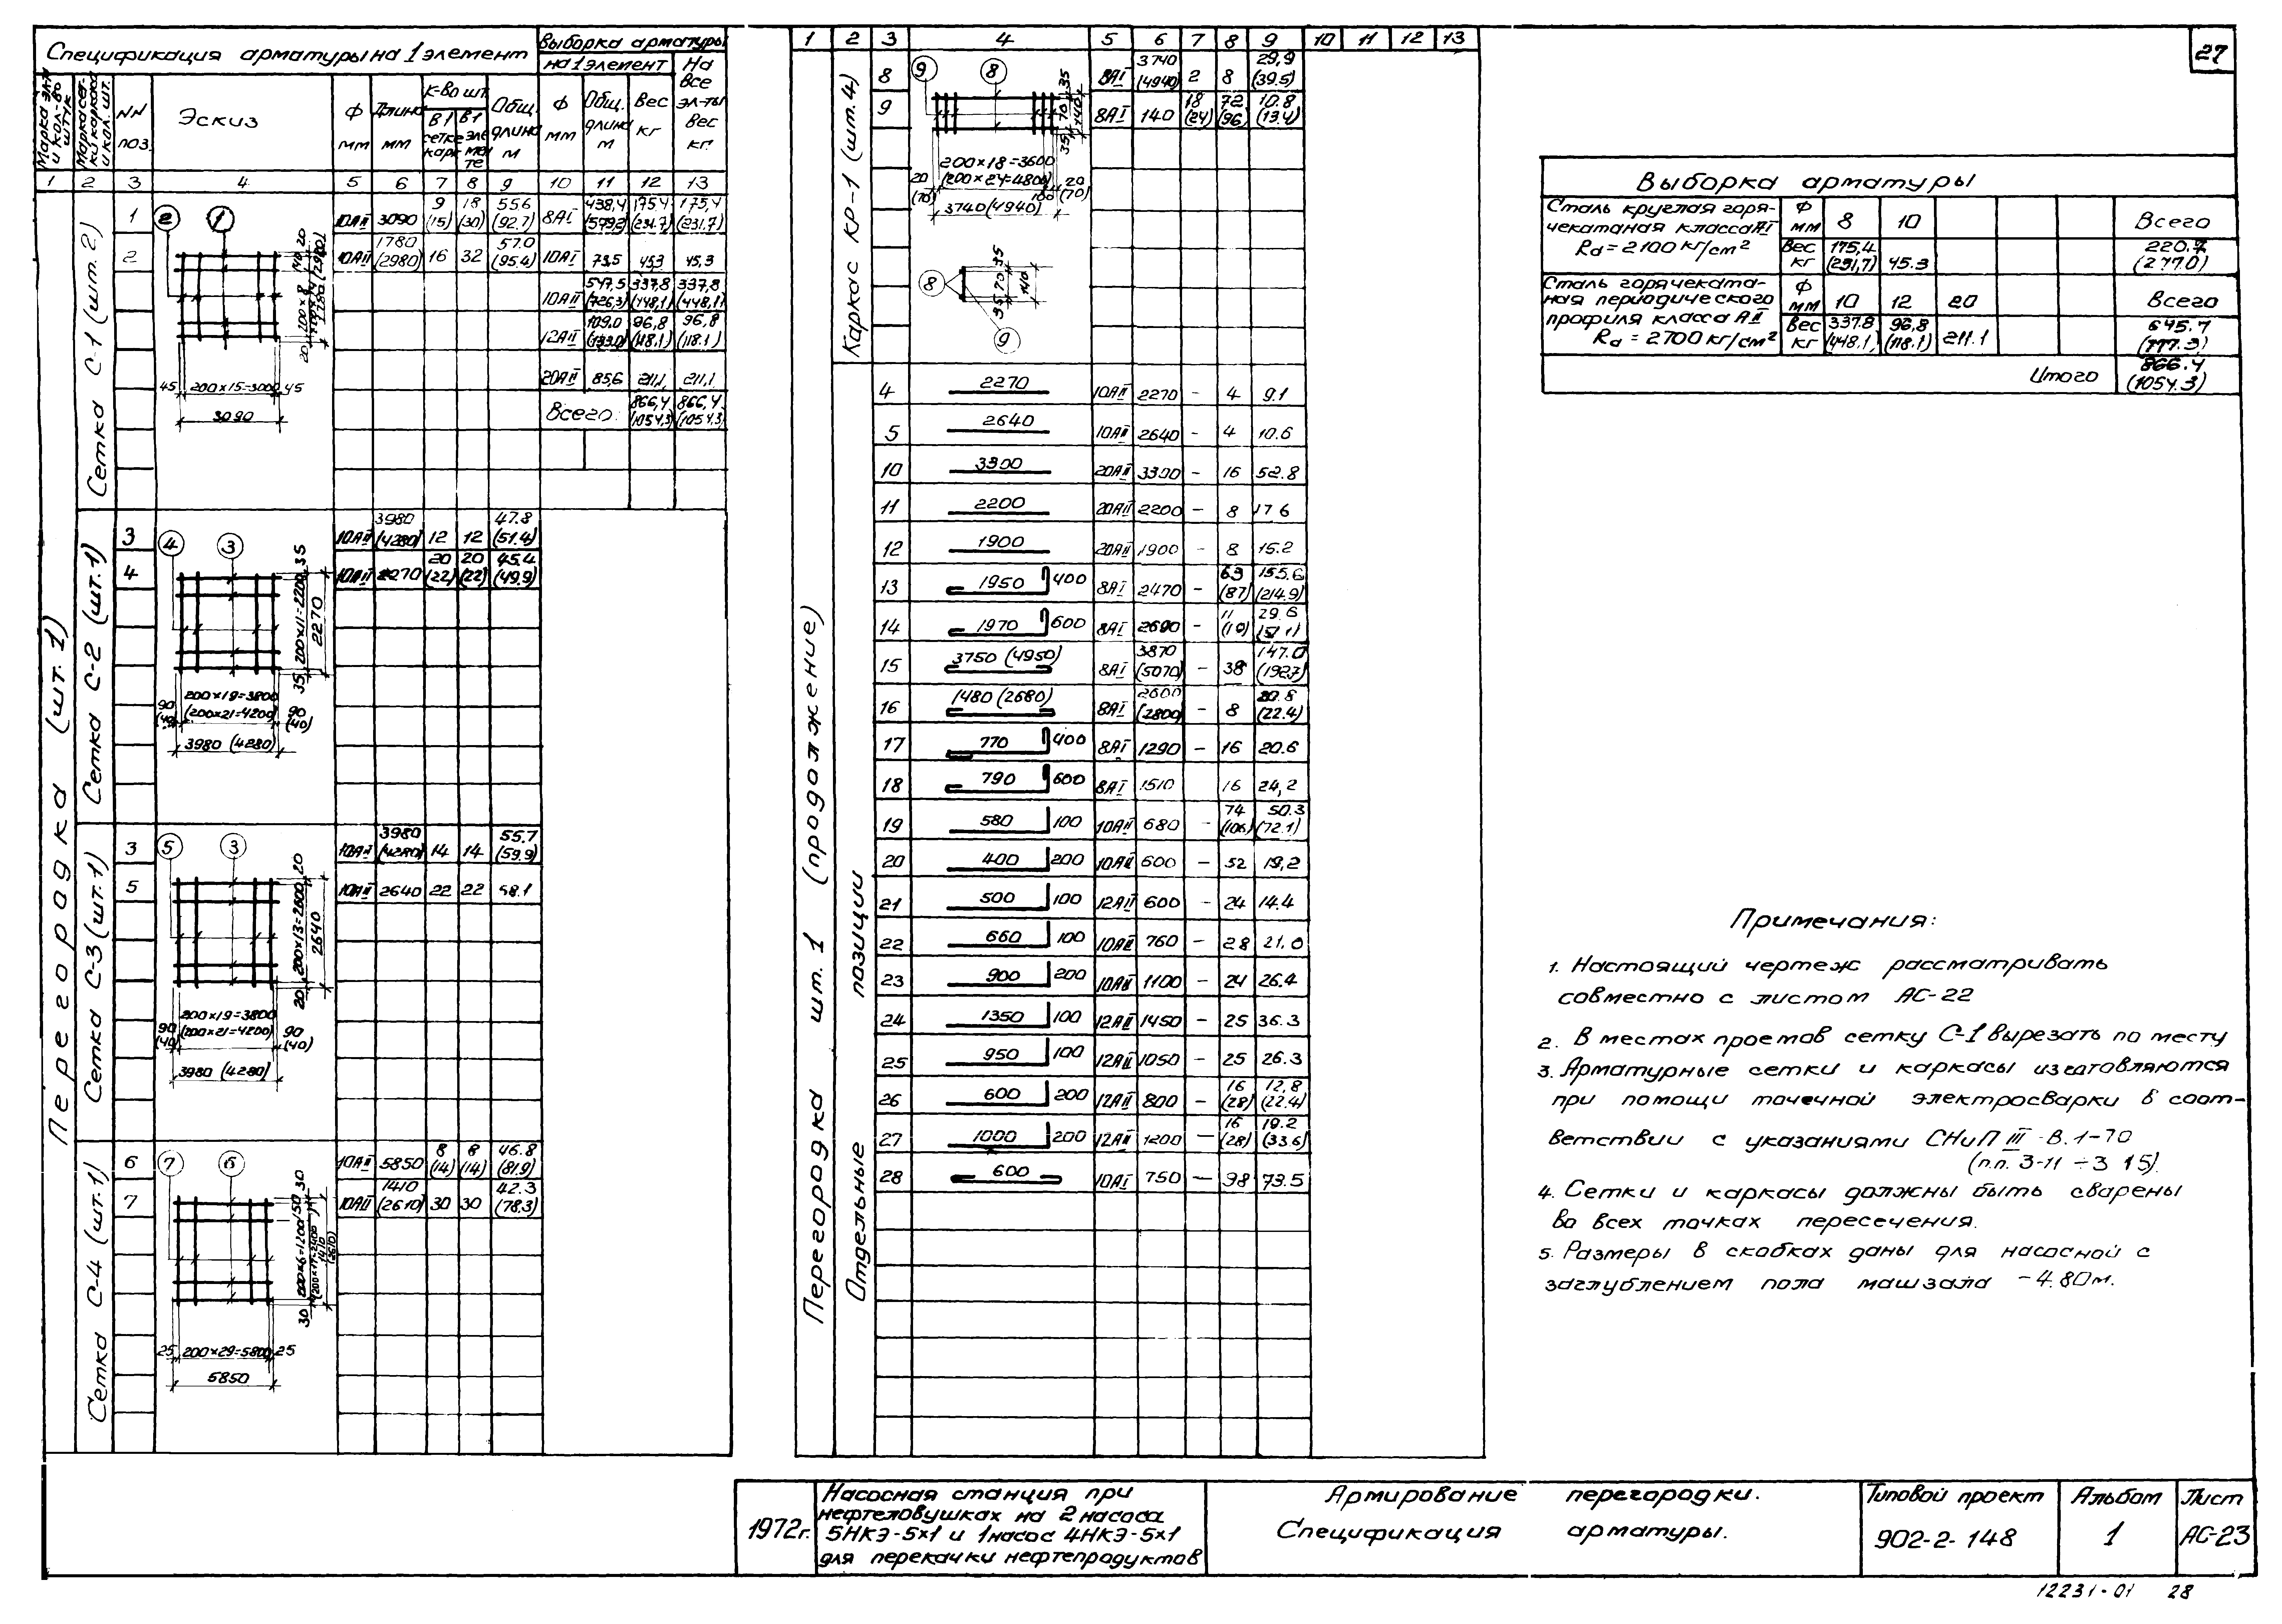 27
Спецификация арматуры на 1 элемент
Выборка арматуры
на 1 элемент
На все эл-ты
Марка эл-та и кол-во штук
Марка сетки каркаса и кол. шт.
NN поз.
Эскиз
Ф мм
Длина мм
К-во шт.
в 1 сетке карк
в 1 элементе
Общ. длина м
Ф мм
Общ. длина м
Вес кг
Вес кг.
1 2 3 4 5 6 7 8 9 10 11 12 13
Перегородка (шт. 1)
Сетка С-1 (шт. 2)
1 10АII 3090 9 (15) 18 (30) 55.6 (92.7)
2 10АII 1780 (2980) 16 32 57.0 (95.4)
8АI 438,4 (579,2) 175,4 (231.7) 175,4 (231.7)
10АI 73.5 45,3 45.3
10АII 547,5 (726,3) 337.8 (448,1) 337,8 (448,1)
12АII 109.0 (133.0) 96,8 (118.1) 96,8 (118.1)
20АII 85,6 211,1 211,1
Всего: 866,4 (1054,3) 866,4 (1054,3)
2 1
45 200×15=3000 45
3090
Сетка С-2 (шт. 1)
3 10АII 3980 (4280) 12 12 47.8 (51.4)
4 10АII 2270 20 (22) 20 (22) 45.4 (49.9)
4 3
35 200×11=2200 35
2270
200×19=3800
90 (40) (200×21=4200) 90 (40)
3980 (4280)
Сетка С-3 (шт. 1)
3 10АII 3980 (4280) 14 14 55.7 (59.9)
5 10АII 2640 22 22 58.1
5 3
20 200×13=2600 20
2640
200×19=3800
90 (40) (200×21=4200) 90 (40)
3980 (4280)
Сетка С-4 (шт. 1)
6 10АII 5850 8 (14) 8 (14) 46.8 (81.9)
7 10АII 1410 (2610) 30 30 42.3 (78.3)
7 6
30 200×6=1200 150 30
1410 (2610)
25 200×29=5800 25
5850
1 2 3 4 5 6 7 8 9 10 11 12 13
Перегородка шт. 1 (продолжение)
Каркас КР-1 (шт. 4)
8 8АI 3740 (4940) 2 8 29,9 (39.5)
9 8АI 140 18 (24) 72 (96) 10.8 (13.4)
9 8
35 70 35
140
200×18=3600
20 (70) (200×24=4800) 20 (70)
3740 (4940)
8
35 70 35
140
9
Отдельные позиции
4 2270 10АII 2270 - 4 9.1
5 2640 10АII 2640 - 4 10.6
10 3300 20АII 3300 - 16 52.8
11 2200 20АII 2200 - 8 17.6
12 1900 20АII 1900 - 8 15.2
13 1950 400 8АI 2470 - 63 (87) 155.6 (214.9)
14 1970 600 8АI 2690 - 11 (19) 29.6 (51.1)
15 3750 (4950) 8АI 3870 (5070) - 38 147.0 (192.7)
16 1480 (2680) 8АI 2600 (2800) - 8 20.8 (22.4)
17 770 400 8АI 1290 - 16 20.6
18 790 600 8АI 1510 16 24,2
19 580 100 10АII 680 - 74 (106) 50.3 (72.1)
20 400 200 10АII 600 - 52 19,2
21 500 100 12АII 600 - 24 14.4
22 660 100 10АII 760 - 28 21.0
23 900 200 10АII 1100 - 24 26.4
24 1350 100 12АII 1450 - 25 36.3
25 950 100 12АII 1050 - 25 26.3
26 600 200 12АII 800 - 16 (28) 12,8 (22.4)
27 1000 200 12АII 1200 - 16 (28) 19.2 (33.6)
28 600 10АI 750 - 98 73.5
Выборка арматуры
Сталь круглая горячекатаная класса АI Rа = 2100 кг/см²
Ф мм 8 10 Всего
Вес кг 175,4 (231,7) 45.3 220.7 (277.0)
Сталь горячекатаная периодического профиля класса АII Rа = 2700 кг/см²
Ф мм 10 12 20 Всего
Вес кг 337.8 (448,1) 96,8 (118.1) 211.1 645.7 (777.3)
Итого 866.4 (1054.3)
Примечания:
1. Настоящий чертеж рассматривать
совместно с листом АС-22
2. В местах проемов сетку С-1 вырезать по месту
3. Арматурные сетки и каркасы изготовляются
при помощи точечной электросварки в соот-
ветствии с указаниями СНиП III-В.1-70
(п.п. 3-11 ÷ 3 15).
4. Сетки и каркасы должны быть сварены
во всех точках пересечения.
5. Размеры в скобках даны для насосной с
заглублением пола машзала -4.80м.
1972г.
Насосная станция при
нефтеловушках на 2 насоса
5НКЭ-5×1 и 1 насос 4НКЭ-5×1
для перекачки нефтепродуктов
Армирование перегородки.
Спецификация арматуры.
Типовой проект
902-2-148
Альбом
1
Лист
АС-23
12231-01 28